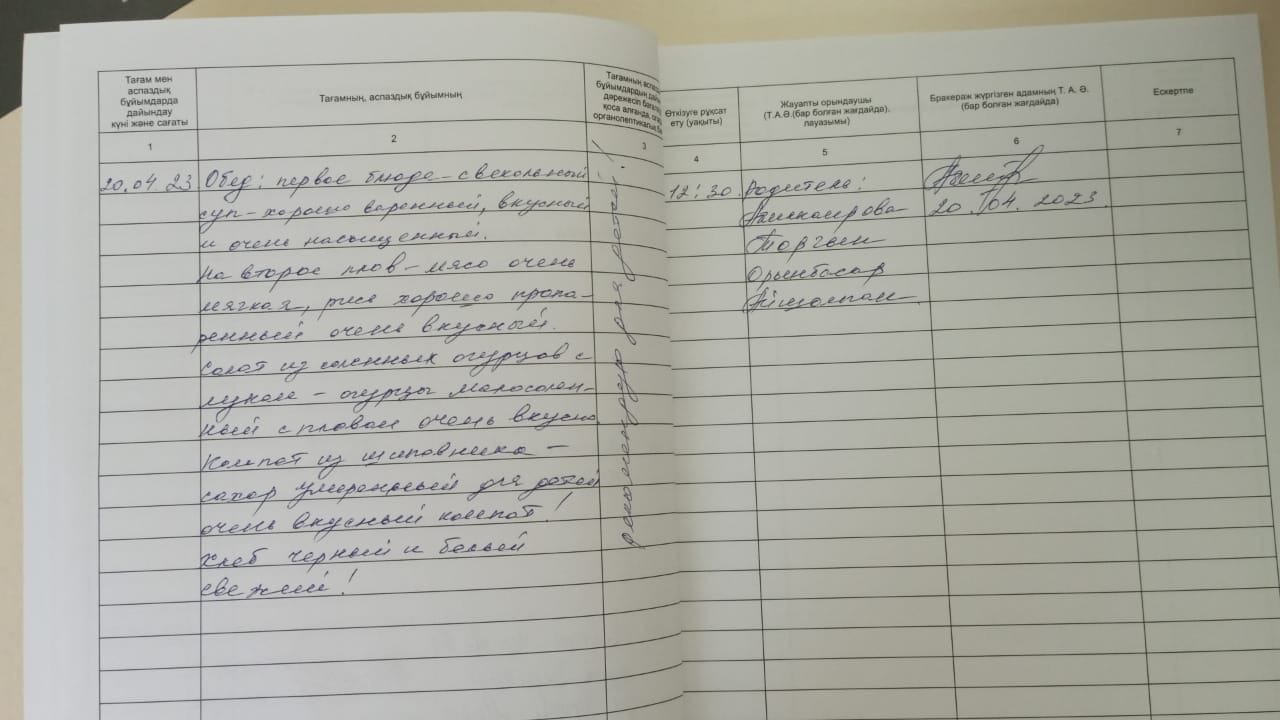 Тағам мен
аспаздық
бұйымдарда
дайындау
күні және сағаты
Тағамның, аспаздық бұйымның
Тағамның аспаз
бұйымдардың дай
дәрежесін баға
қоса алғанда,
органолептикалық
Өткізуге рұқсат
ету (уақыты)
Жауапты орындаушы
(Т.А.Ә.(бар болған жағдайда),
лауазымы)
Бракераж жүргізген адамның Т. А. Ә.
(бар болған жағдайда)
Ескертпе
1
2
3
4
5
6
7
20.04.23
Обед: первое блюдо - свекольный
суп - хорошо варенный, вкусный
и очень насыщенный.
На второе плов - мясо очень
мягкая, рис хорошо пропа-
ренный очень вкусный.
Салат из соленных огурцов с
луком - огурцы малосолен-
ный с пловом очень вкусно.
Компот из шиповника -
сахар умеренный для детей
очень вкусный компот!
Хлеб черный и белый
свежий!
рекомендую для детей!
12:30
Родители:
Торгын
Орынбасар
Айшолпан
20.04.2023